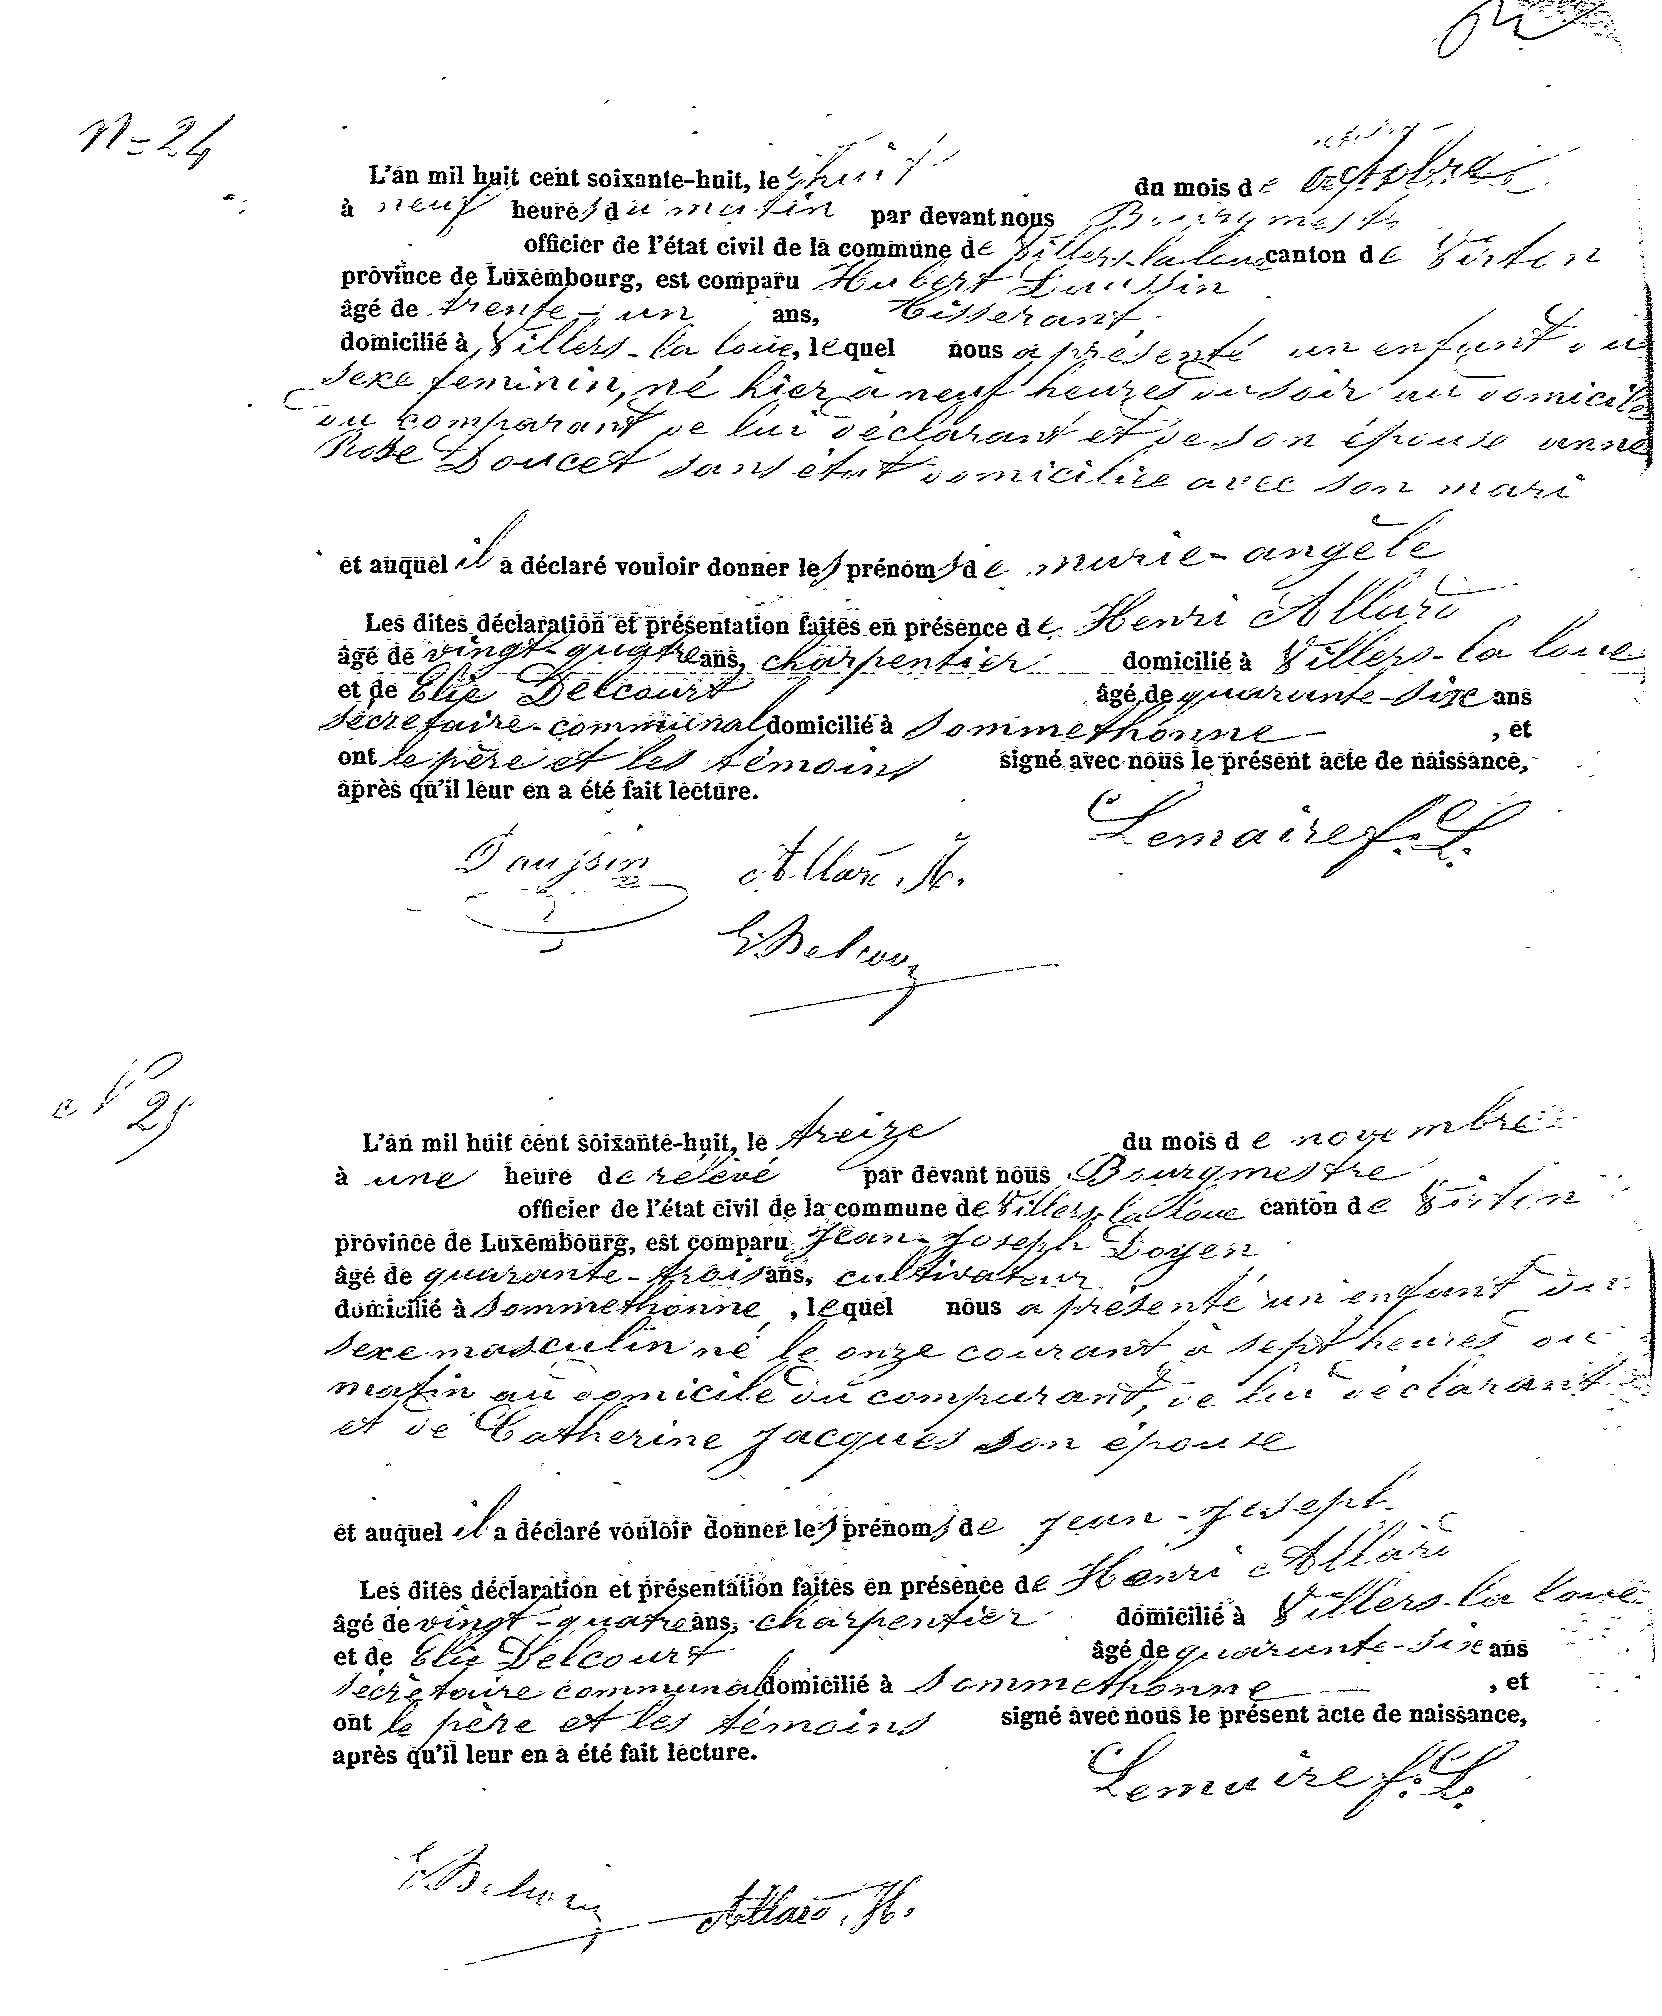 N= 24
L'an mil huit cent soixante-huit, le huit du mois de octobre
à neuf heures du matin par devant nous Bourgmestre
officier de l'état civil de la commune de Villers-la loue canton de Virton
province de Luxembourg, est comparu Hubert Daussin
âgé de trente-un ans, Tisserant,
domicilié à Villers-la loue, lequel nous a présenté un enfant du
sexe feminin, né hier à neuf heures du soir au domicile
du comparant de lui déclarant et de son épouse anne
Rose Doucet sans état domiciliée avec son mari
et auquel il a déclaré vouloir donner les prénoms de marie-angèle
Les dites déclaration et présentation faites en présence de Henri Allard
âgé de vingt-quatre ans, charpentier domicilié à Villers-la loue
et de Elie Delcourt âgé de quarante-six ans
secretaire-communal domicilié à Sommethonne , et
ont le père et les témoins signé avec nous le présent acte de naissance,
après qu'il leur en a été fait lecture.
Lemaire f. L.
Daussin Allard. H.
E Delcour
N° 25
L'an mil huit cent soixante-huit, le treize du mois de novembre
à une heure de relevé par devant nous Bourgmestre
officier de l'état civil de la commune de Villers-la loue canton de Virton
province de Luxembourg, est comparu Jean-Joseph Doyen
âgé de quarante-trois ans, cultivateur
domicilié à Sommethonne , lequel nous a présenté un enfant du
sexe masculin né le onze courant à sept heures du
matin au domicile du comparant, de lui déclarant
et de Catherine Jacques son épouse
et auquel il a déclaré vouloir donner les prénoms de Jean-Joseph
Les dites déclaration et présentation faites en présence de Henri Allard
âgé de vingt-quatre ans, charpentier domicilié à Villers-la loue
et de Elie Delcourt âgé de quarante-six ans
secrètaire communal domicilié à Sommethonne , et
ont le père et les témoins signé avec nous le présent acte de naissance,
après qu'il leur en a été fait lecture.
Lemaire f. L.
E Delcour Allard. H.